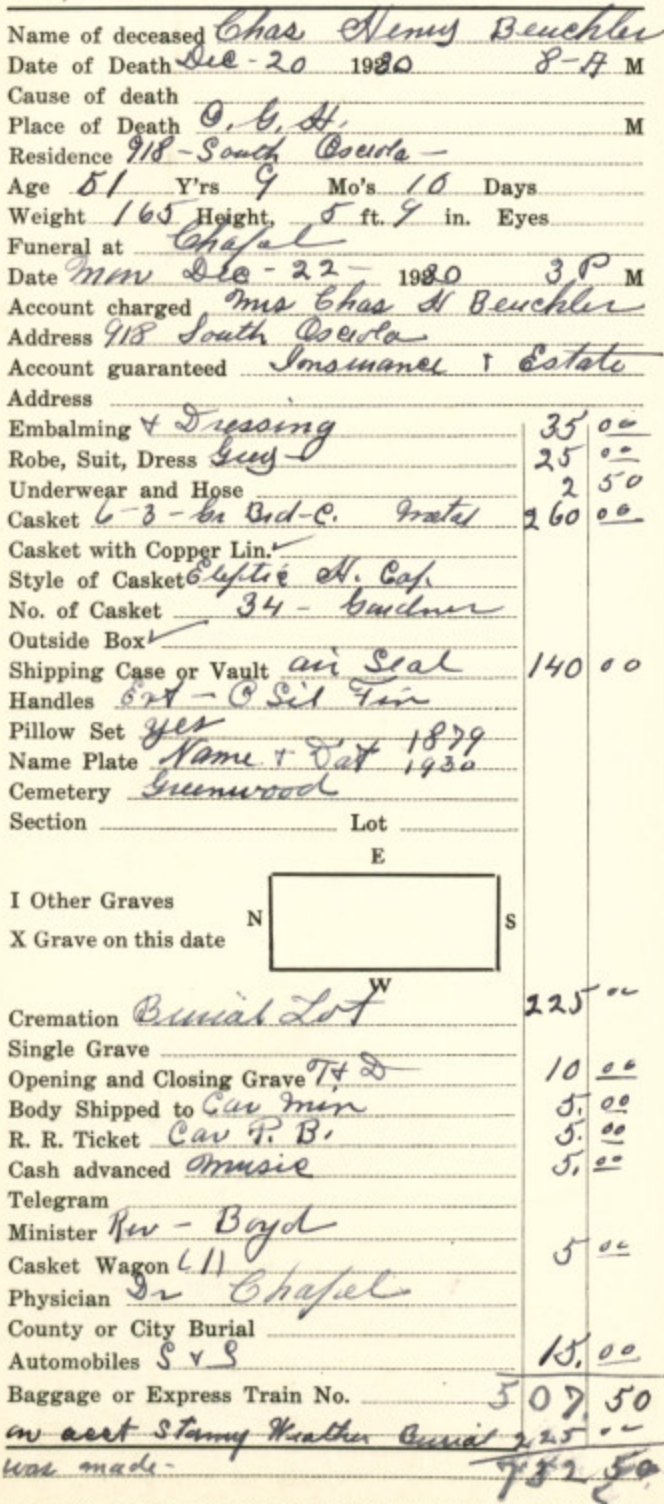 Name of deceased Chas Henry Beuchler
Date of Death Dec - 20 1930 8-A M
Cause of death
Place of Death O. G. H. M
Residence 918 - South Osceola -
Age 51 Y'rs 9 Mo's 10 Days
Weight 165 Height, 5 ft. 9 in. Eyes
Funeral at Chapel
Date Mon Dec - 22 - 1930 3 P M
Account charged Mrs Chas H Beuchler
Address 918 South Osceola
Account guaranteed Insurance + Estate
Address
Embalming + Dressing 35 00
Robe, Suit, Dress Grey 25 00
Underwear and Hose 2 50
Casket 6-3 - Gr Brd-C. Metal 260 00
Casket with Copper Lin. ✓
Style of Casket Eleptic H. Cap.
No. of Casket 34 - Gardner
Outside Box ✓
Shipping Case or Vault air Seal 140 00
Handles Ext - O Sil Fin
Pillow Set yes
Name Plate Name + Dat 1879 1930
Cemetery Greenwood
Section Lot
E
I Other Graves
N S
X Grave on this date
W
Cremation Burial Lot 225 00
Single Grave
Opening and Closing Grave T & D 10 00
Body Shipped to Car Min 5. 00
R. R. Ticket Car P. B. 5. 00
Cash advanced Music 5. 00
Telegram
Minister Rev - Boyd
Casket Wagon 5 00
Physician Dr Chapel
County or City Burial
Automobiles S & S 15. 00
Baggage or Express Train No. 507 50
on acct Stormy Weather Burial 225 00
was made - 732 50